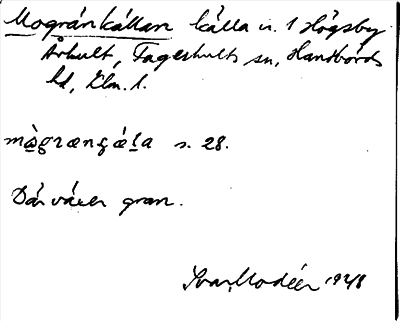 Mogränkällan källa n. 1 Högsby
Århult, Fagerhults sn, Handbörds
hd, Klm. l.
mògrænçæ̀la s. 28.
Där växer gran.
Ivar Modéer 1928